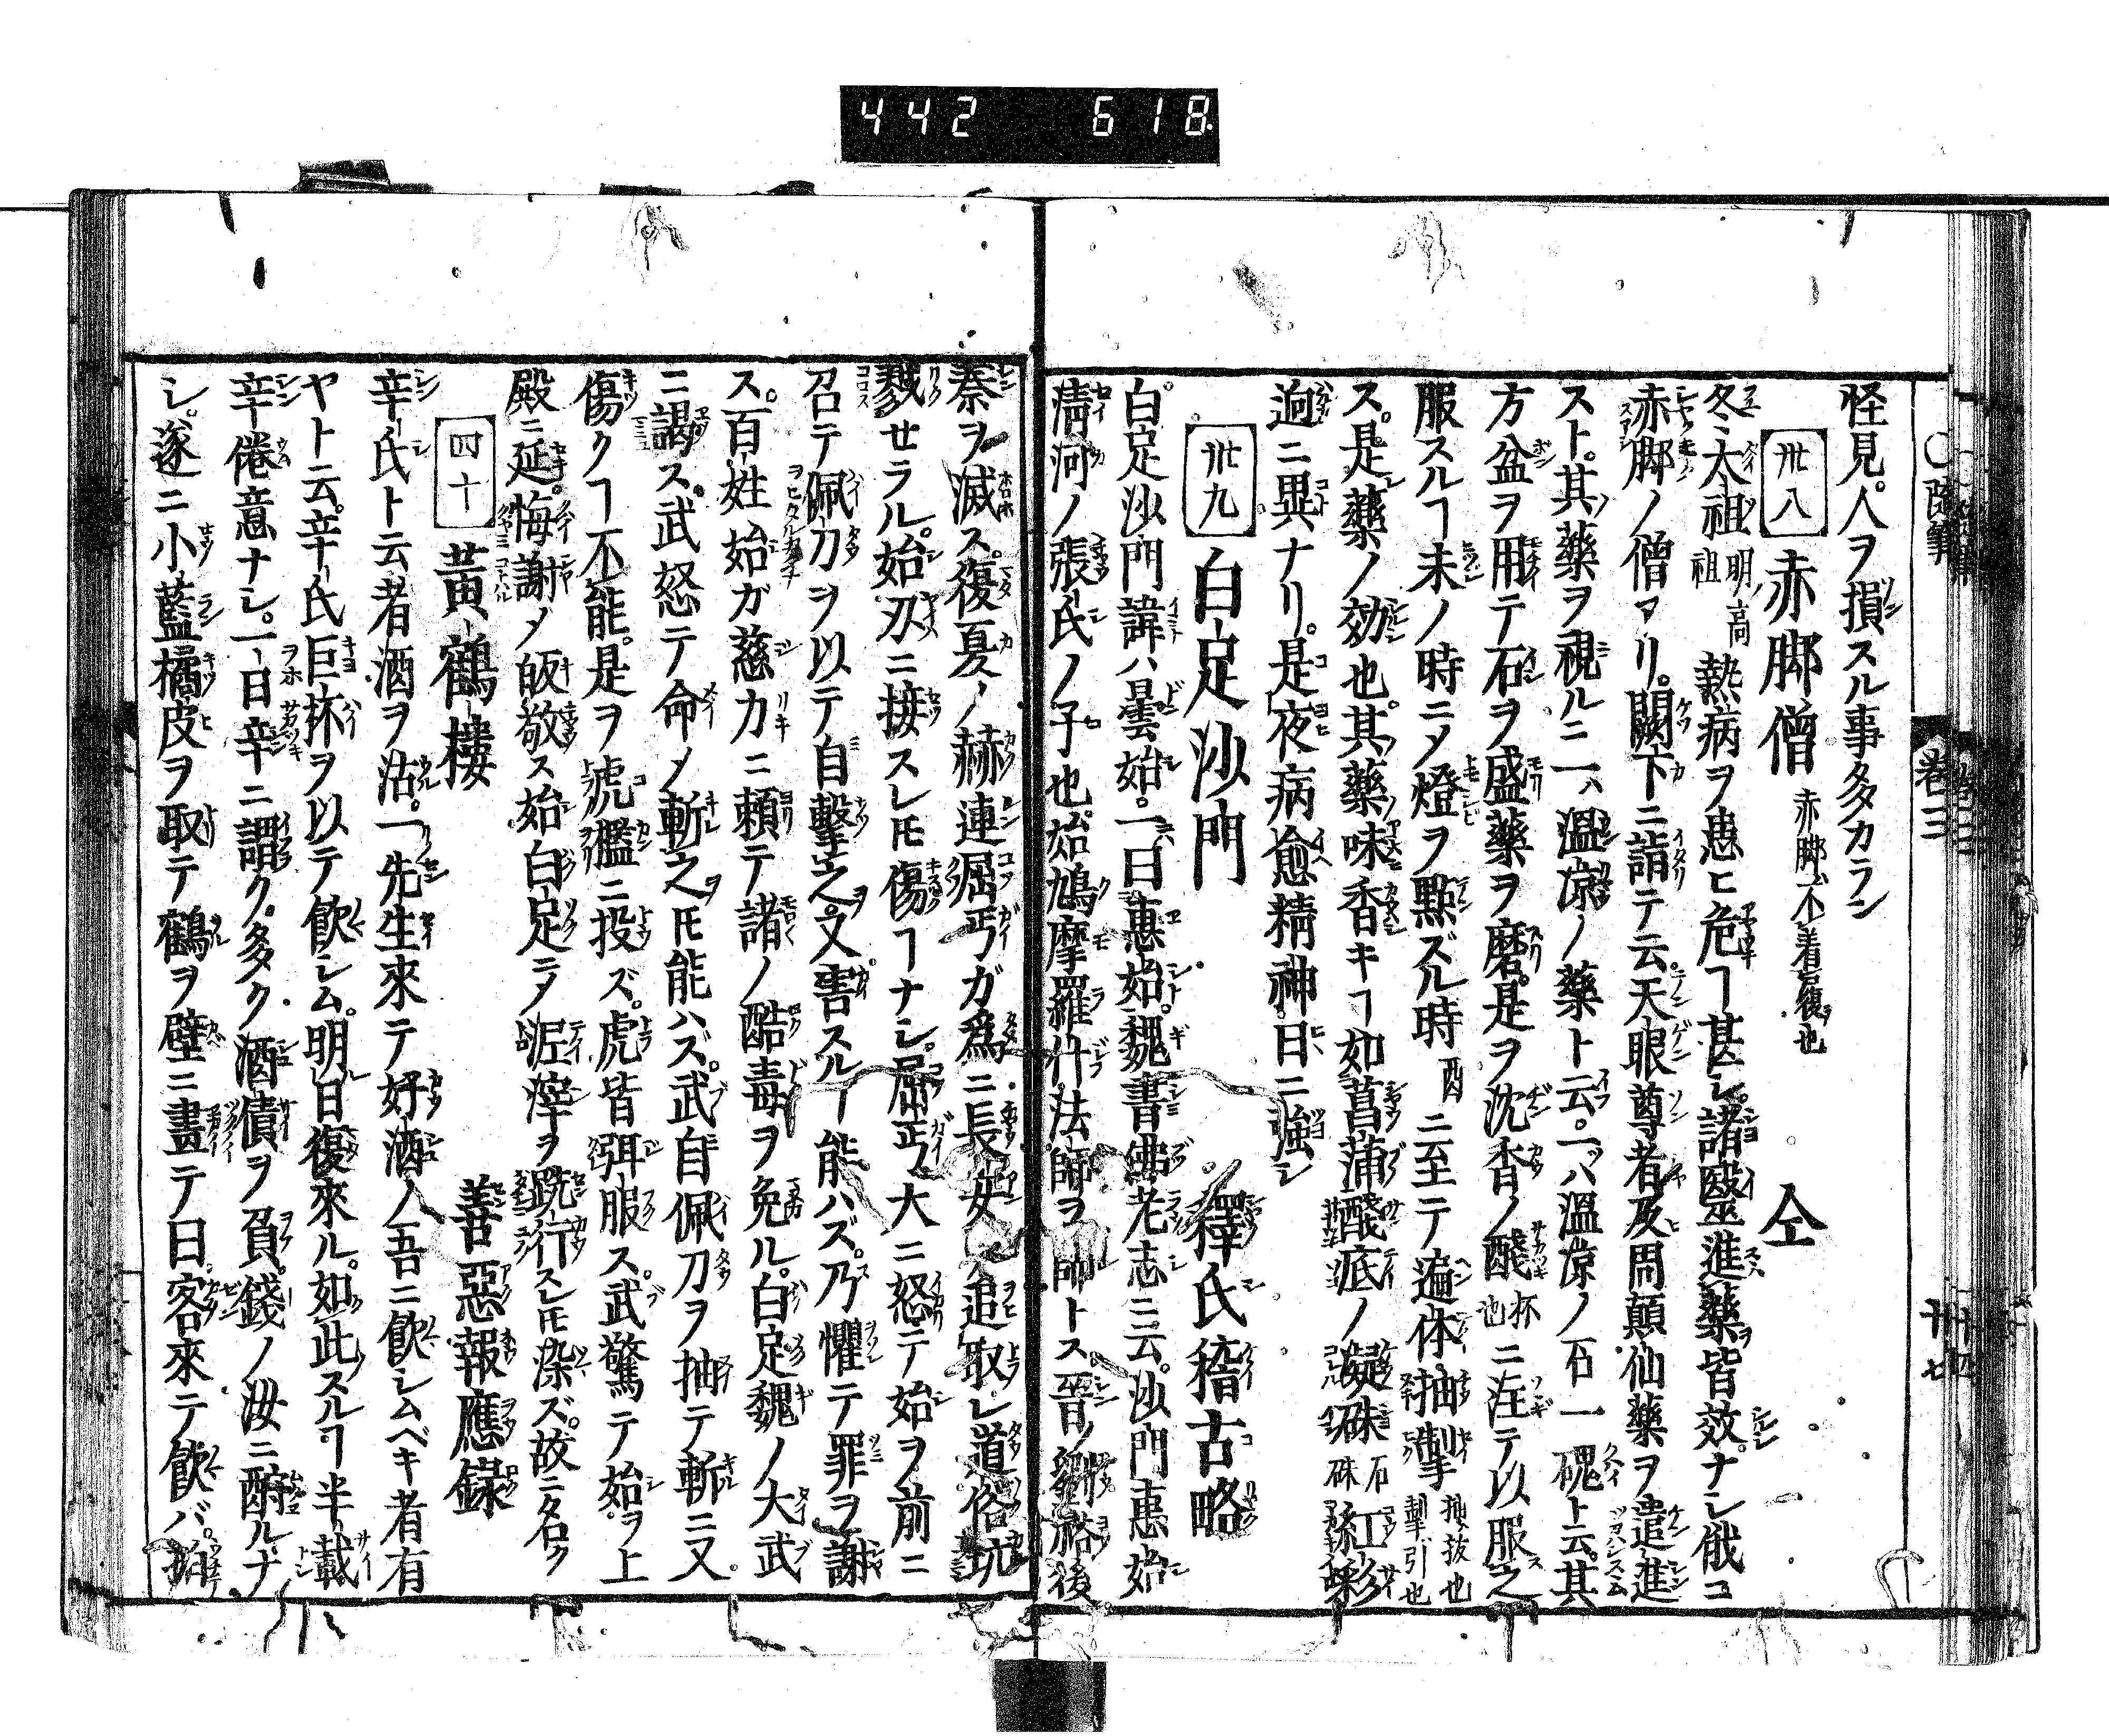 442 618
怪見。人ヲ損スル事多カラン
卅八 赤脚僧 赤脚不着履也 仝
冬太祖 明高祖 熱病ヲ患ヒ危ヿ甚シ。諸毉進藥皆效ナシ俄コ
赤脚ノ僧アリ。闕下ニ詣テ云。天眼尊者及周顛仙藥ヲ遣進
スト。其藥ヲ視ルニ一ハ溫涼ノ藥ト云。一ハ溫涼ノ石一磈ト云。其
方盆ヲ用テ石ヲ盛藥ヲ磨。是ヲ沈香ノ醆 杯也 ニ注テ以服之
服スルヿ未ノ時ニメ燈ヲ點ズル時 酉 ニ至テ遍体抽掣 抽拔也掣引也
ス。是藥ノ効也。其藥味香キヿ如菖蒲醆底ノ凝硃 石硃 紅彩
逈ニ異ナリ。是夜病愈精神日ニ強シ
卅九 白足沙門 釋氏稽古略
白足沙門諱ハ曇始。一曰惠始。魏書佛老志ニ云。沙門惠始
淸河ノ張氏ノ子也。始鳩摩羅什法師ヲ師トス。晉ノ劉裕後
秦ヲ滅ス。復夏ノ赫連屈丐ガ爲ニ長安ヲ追取レ道俗坑
戮セラル。始刃ニ接スレ𪜈傷ヿナシ。屈丐大ニ怒テ始ヲ前ニ
召テ佩刀ヲ以テ自擊之。又害スルヿ能ハズ。乃懼テ罪ヲ謝
ス。百姓始ガ慈力ニ賴テ諸ノ酷毒ヲ免ル。白足魏ノ大武
ニ謁ス。武怒テ命メ斬之𪜈能ハズ。武自佩刀ヲ抽テ斬ニ又
傷クヿ不能。是ヲ虎檻ニ投ズ。虎皆弭服ス。武驚テ始ヲ上
殿ニ延。悔謝メ皈敬ス始白足ニメ泥滓ヲ跣行スレ𪜈染ズ。故ニ名ク
四十 黃鶴樓 善惡報應錄
辛氏ト云者酒ヲ沽。一先生來テ好酒ノ吾ニ飮シムベキ者有
ヤト云。辛氏巨杯ヲ以テ飮シム。明日復來ル。如此スルヿ半載
辛倦意ナシ。一日辛ニ謂ク。多ク酒債ヲ負。錢ノ汝ニ酧ルナ
シ。遂ニ小藍橘皮ヲ取テ鶴ヲ壁ニ畫テ曰。客來テ飮バ。拍
卷二
十七